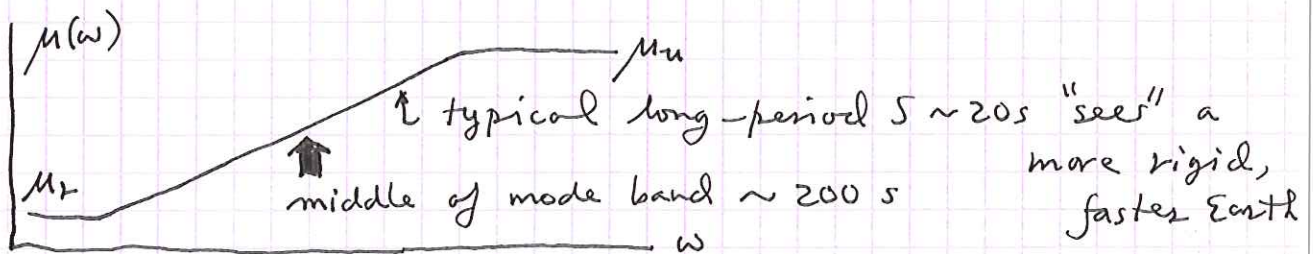 μ(ω)
μu
typical long-period S ~20s "sees" a
more rigid,
faster Earth
μr
middle of mode band ~ 200 s
ω